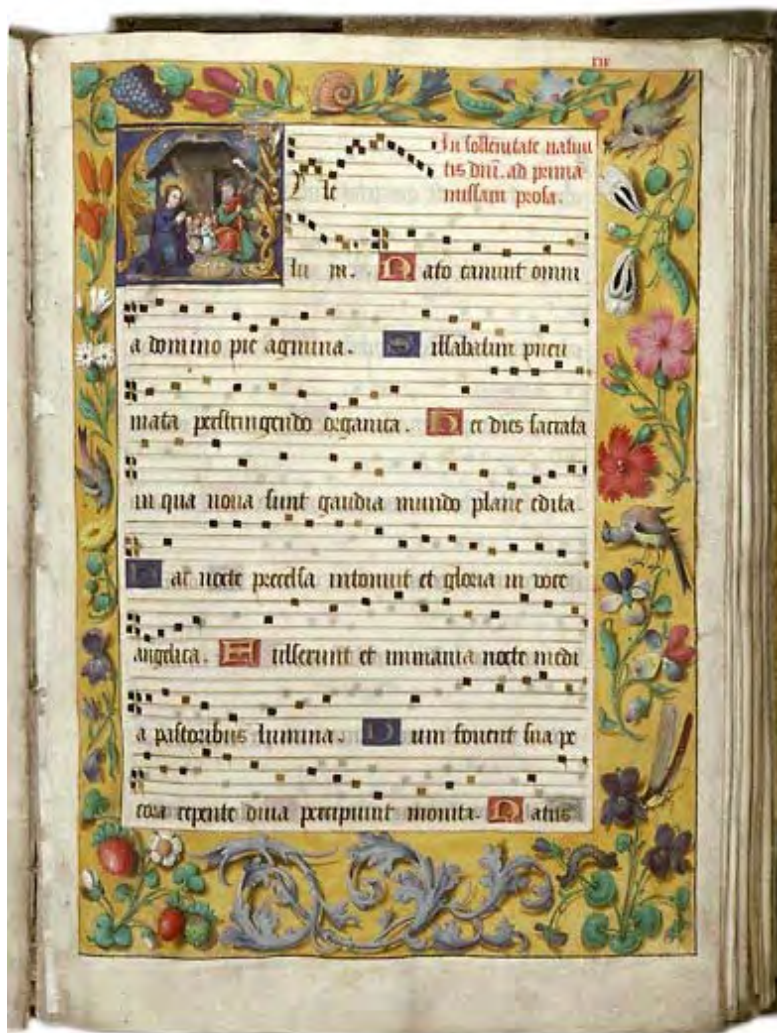 In sollenitate nativi
tis dni. ad primã
missam prosa.
lle
lu ia. Nato canunt omni
a domino pie agmina. Sillabatim pneu
mata perstringendo organica. Hec dies sacrata
in qua nova sunt gaudia mundo plane edita.
Hac nocte precelsa intonuit et gloria in voce
angelica. Fulserunt et immania nocte medi
a pastoribus lumina. Dum fovent sua pe
cora repente diva percipiunt monita. Natus